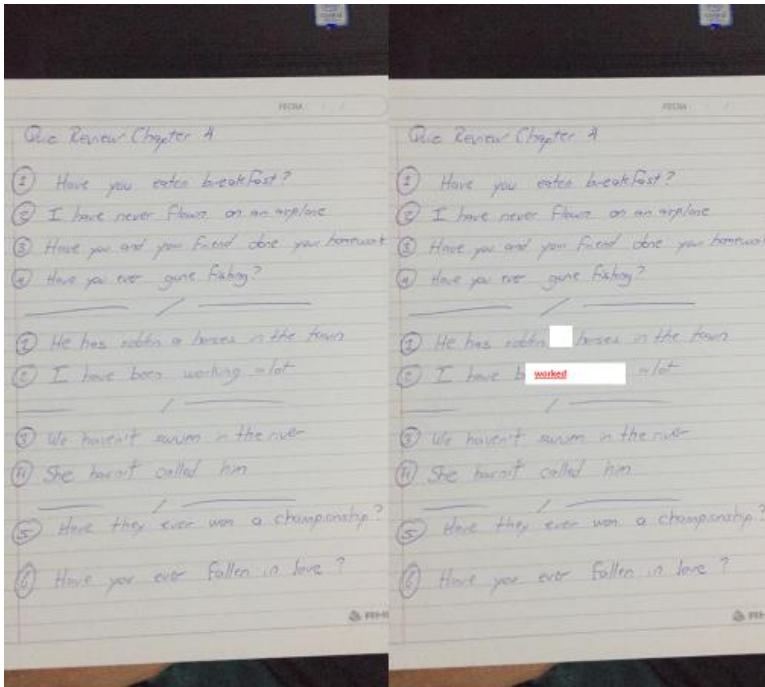 FECHA / /
Quiz Review Chapter 4
1 Have you eaten breakfast?
2 I have never flown on an airplane
3 Have you and your friend done your homework
4 Have you ever gone fishing?
1 He has a horses in the town
2 I have been working a lot
3 We haven't swum in the river
4 She hasn't called him
5 Have they ever won a championship?
6 Have you ever fallen in love?
FECHA / /
Quiz Review Chapter 4
1 Have you eaten breakfast?
2 I have never flown on an airplane
3 Have you and your friend done your homework
4 Have you ever gone fishing?
1 He has horses in the town
2 I have b worked a lot
3 We haven't swum in the river
4 She hasn't called him
5 Have they ever won a championship?
6 Have you ever fallen in love?